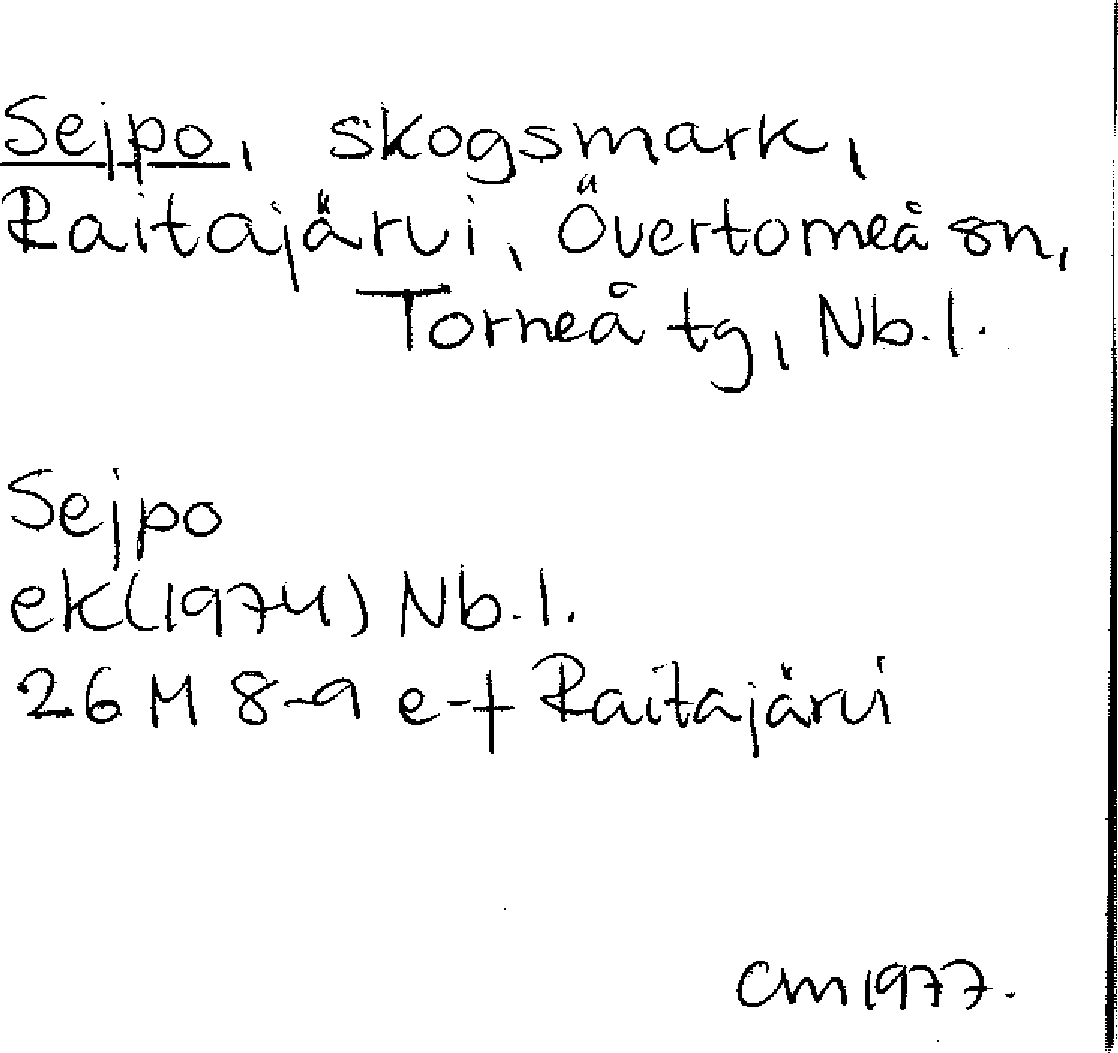 Sejpo, skogsmark,
Raitajärvi, Övertorneå sn,
Torneå tg, Nb.l.
Sejpo
ek(1974) Nb.l.
26 M 8-9 e-f Raitajärvi
CM 1977.